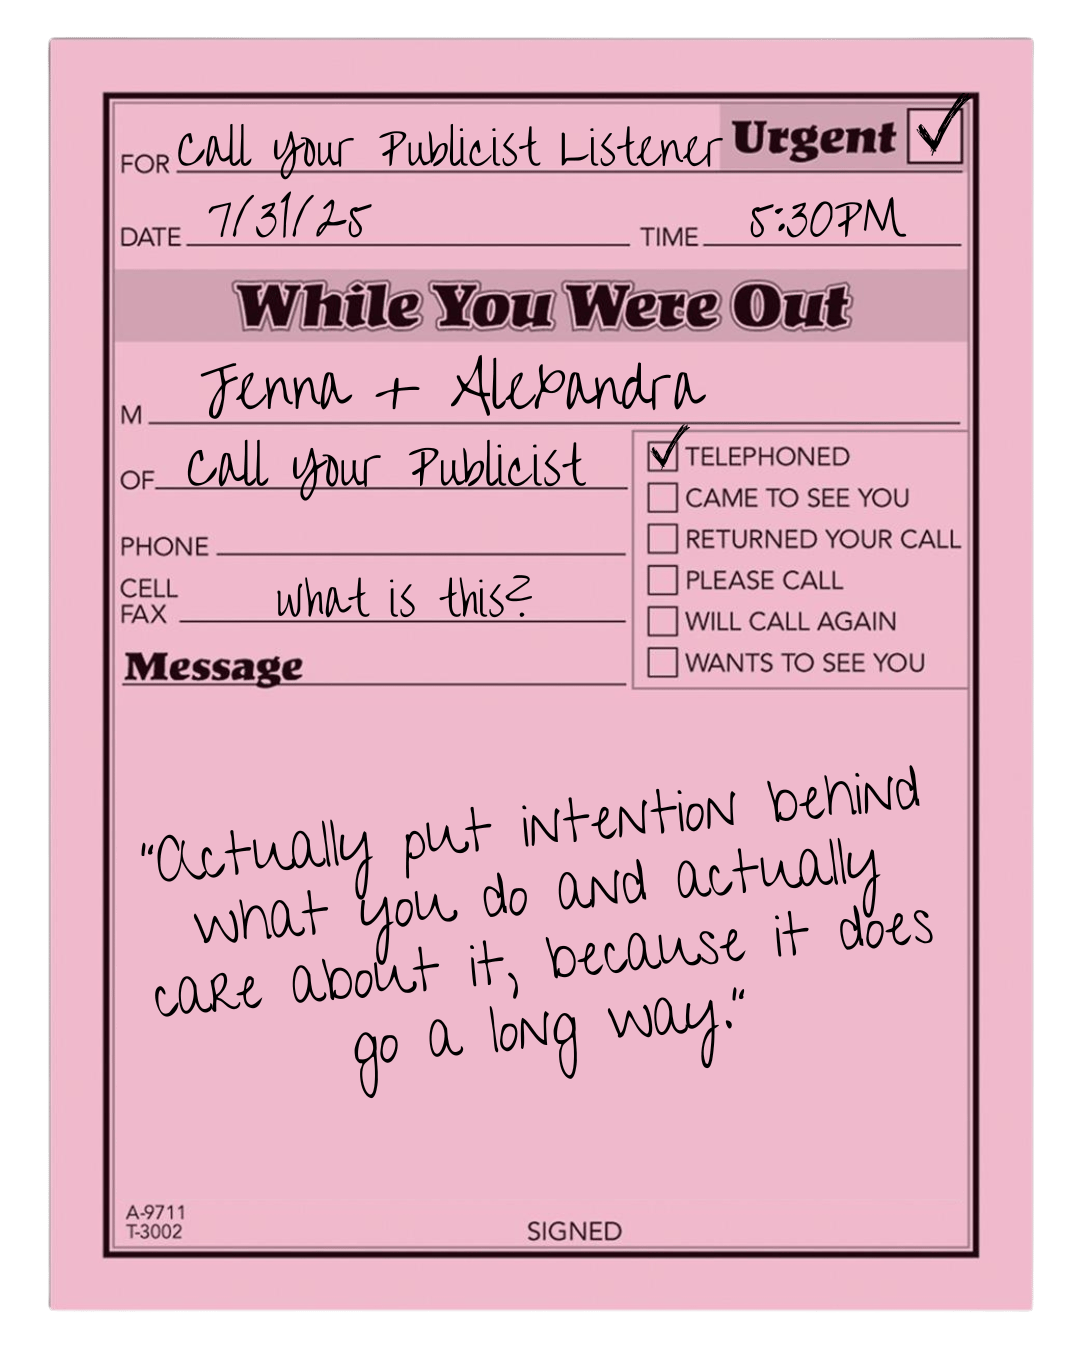 FOR Call your Publicist Listener Urgent
DATE 7/31/25 TIME 5:30PM
While You Were Out
M Jenna + Alexandra
OF Call your Publicist
TELEPHONED
CAME TO SEE YOU
PHONE
RETURNED YOUR CALL
CELL
FAX what is this?
PLEASE CALL
WILL CALL AGAIN
Message
WANTS TO SEE YOU
"Actually put intention behind
what you do and actually
care about it, because it does
go a long way."
A-9711
T-3002
SIGNED